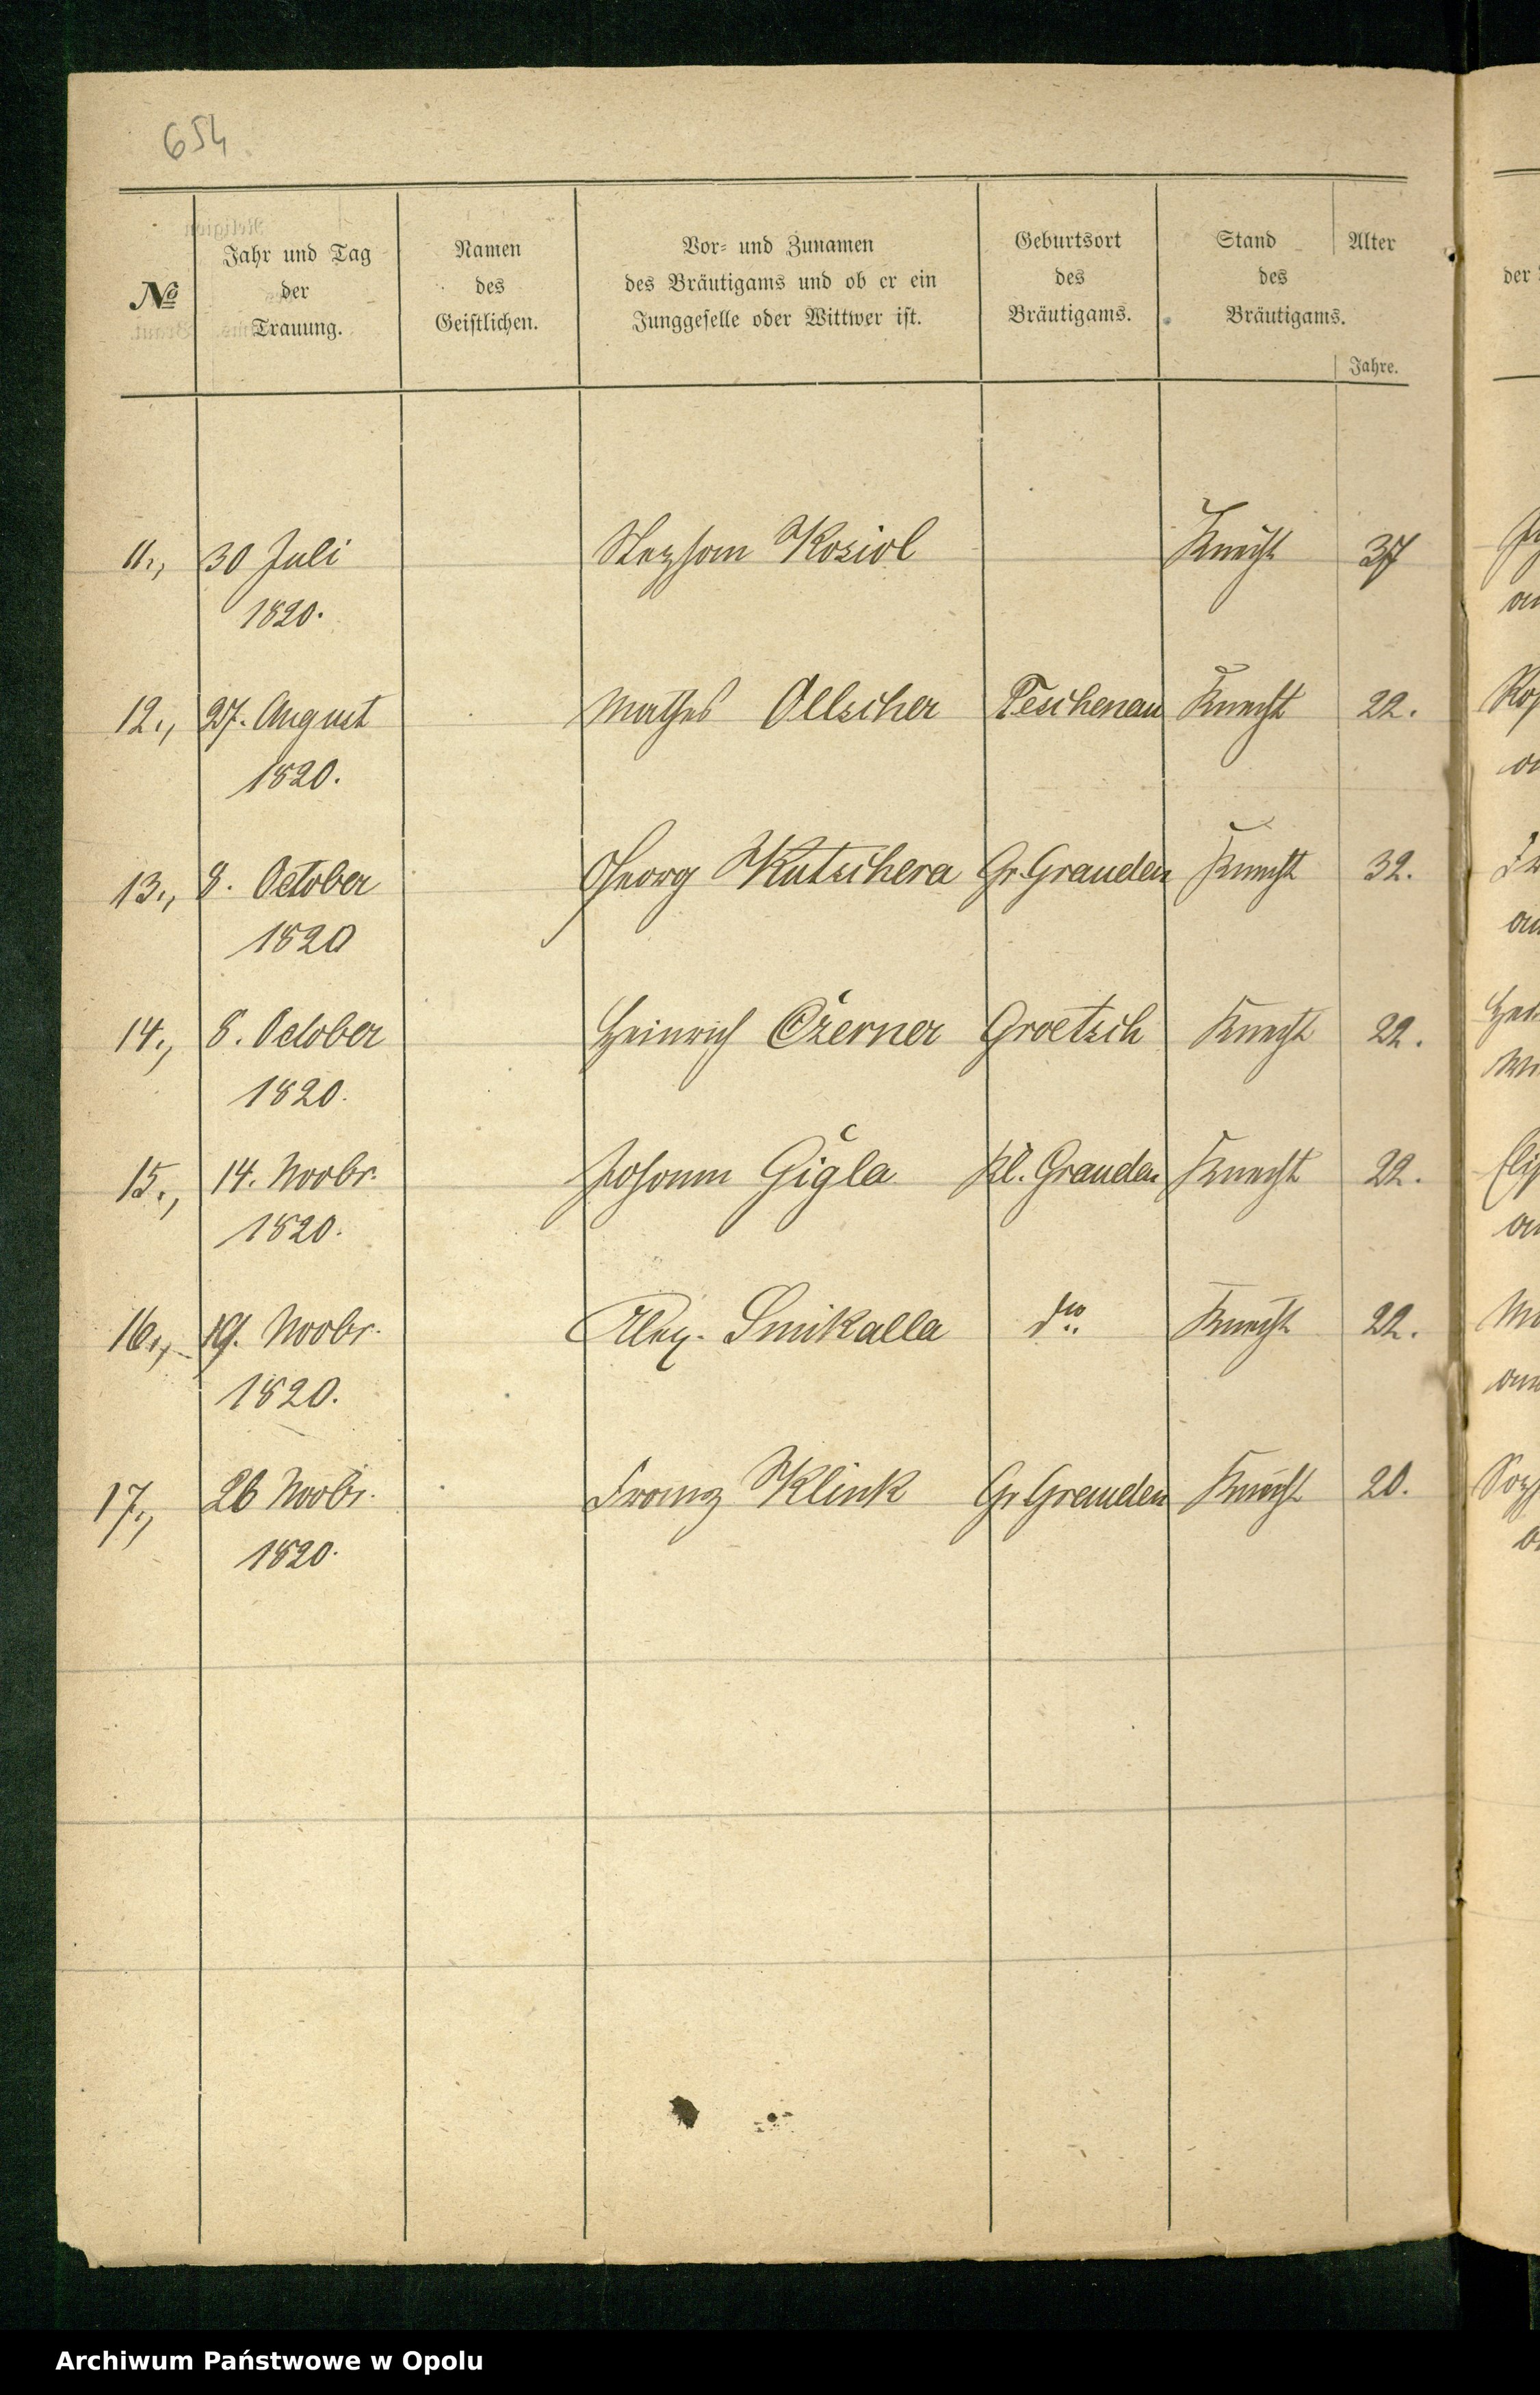 654
№
Jahr und Tag
der
Trauung.
Namen
des
Geistlichen.
Vor- und Zunamen
des Bräutigams und ob er ein
Junggeselle oder Wittwer ist.
Geburtsort
des
Bräutigams.
Stand
des
Bräutigams.
Alter
Jahre.
der
11., 30 Juli Stephan Koziol Knecht 37
1820.
12., 27. August Mathes Ollscher Teschenau Knecht 22.
1820.
13., 8. October Georg Kutschera Gr. Grauden Knecht 32.
1820
14., 8. October Heinrich Czerner Groetsch Knecht 22.
1820.
15., 14. Novbr. Johann Gigla Kl. Grauden Knecht 22.
1820.
16., 19. Novbr. Alex. Smikalla dto. Knecht 22.
1820.
17., 26 Novbr. Franz Klink Gr. Grauden Knecht 20.
1820.
Archiwum Państwowe w Opolu